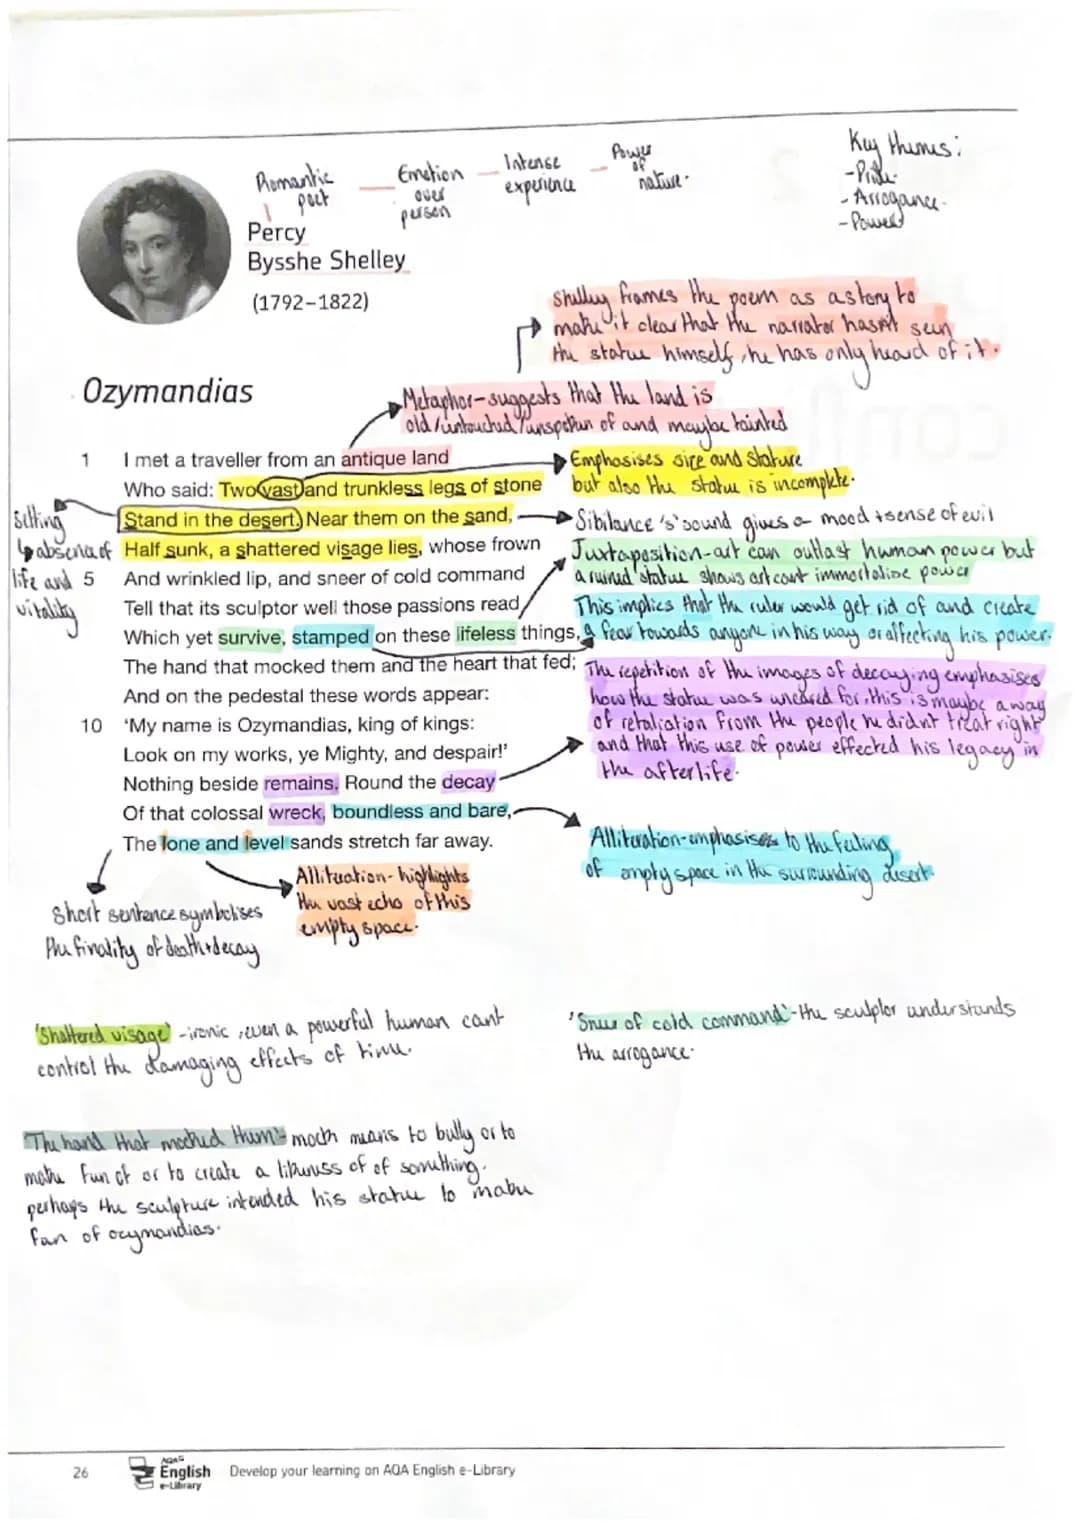 Romantic poet — Emotion over person — Intense experience — Power of nature.
Key themes:
- Pride.
- Arrogance.
- Power
Percy
Bysshe Shelley
(1792–1822)
Shelley frames the poem as a story to
make it clear that the narrator hasn't seen
the statue himself, he has only heard of it.
Ozymandias
Metaphor-suggests that the land is
old/untouched/unspoken of and maybe tainted
1 I met a traveller from an antique land
Who said: Two vast and trunkless legs of stone
Stand in the desert. Near them on the sand,
Half sunk, a shattered visage lies, whose frown
5 And wrinkled lip, and sneer of cold command
Tell that its sculptor well those passions read
Which yet survive, stamped on these lifeless things,
The hand that mocked them and the heart that fed;
And on the pedestal these words appear:
10 ‘My name is Ozymandias, king of kings:
Look on my works, ye Mighty, and despair!’
Nothing beside remains. Round the decay
Of that colossal wreck, boundless and bare,
The lone and level sands stretch far away.
Setting
↳ absence of
life and
vitality
Emphasises size and stature
but also the statue is incomplete.
Sibilance 's' sound gives a mood + sense of evil
Juxtaposition-art can outlast human power but
a ruined statue shows art cant immortalise power
This implies that the ruler would get rid of and create
a fear towards anyone in his way or affecting his power.
The repetition of the images of decaying emphasises
how the statue was uncared for, this is maybe a way
of retaliation from the people he didnt treat right
and that this use of power effected his legacy in
the afterlife.
Alliteration-emphasises to the feeling
of empty space in the surrounding desert.
Alliteration- highlights
the vast echo of this
empty space.
Short sentence symbolises
the finality of death+decay
'Shattered visage' -ironic, even a powerful human cant
control the damaging effects of time.
'Sneer of cold command'-the sculptor understands
the arrogance.
'The hand that mocked them'- mock means to bully or to
make fun of or to create a likeness of of something.
perhaps the sculpture intended his statue to make
fun of ozymandias.
26
AQA
English
e-Library
Develop your learning on AQA English e-Library